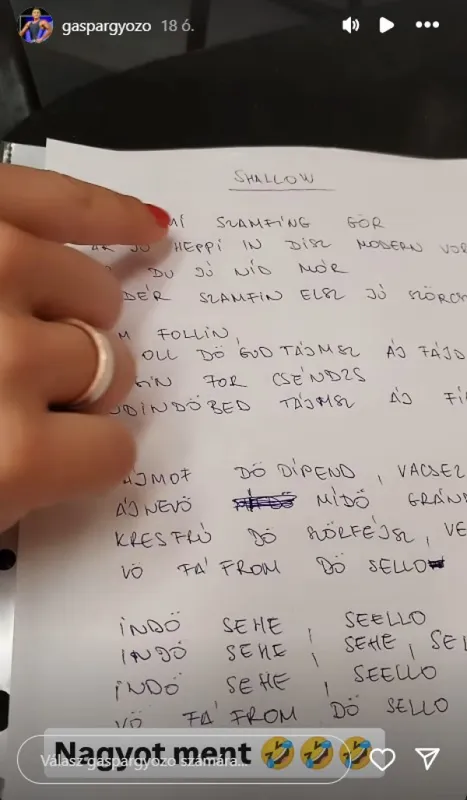 gaspargyozo 18 ó.
SHALLOW
MÍ SZAMFING GÖR
ÁR JÚ HEPPI IN DISZ MODERN VOR
DU JÚ NÍD MÓR
DER SZAMFIN ELSZ JÚ SZÖRCH
M FOLLIN
OLL DÖ GUD TÁJMSZ ÁJ FÁJD
FOR CSÉNDZS
INDÖBED TÁJMSZ ÁJ FI
ÁJMOF DÖ DÍPEND, VACSEZ
ÁJNEVÖ MÍDÖ GRÁN
KRESFRÚ DÖ SZÖRFÉJSZ, VE
VÖ FÁ' FROM DÖ SELLO
INDÖ SEHE, SEELLO
INDÖ SEHE, SEHE, SEL
INDÖ SEHE, SEELLO
VÖ FÁ' FROM DÖ SELLO
Nagyot ment 🤣🤣🤣
Válasz gaspargyozo számára...